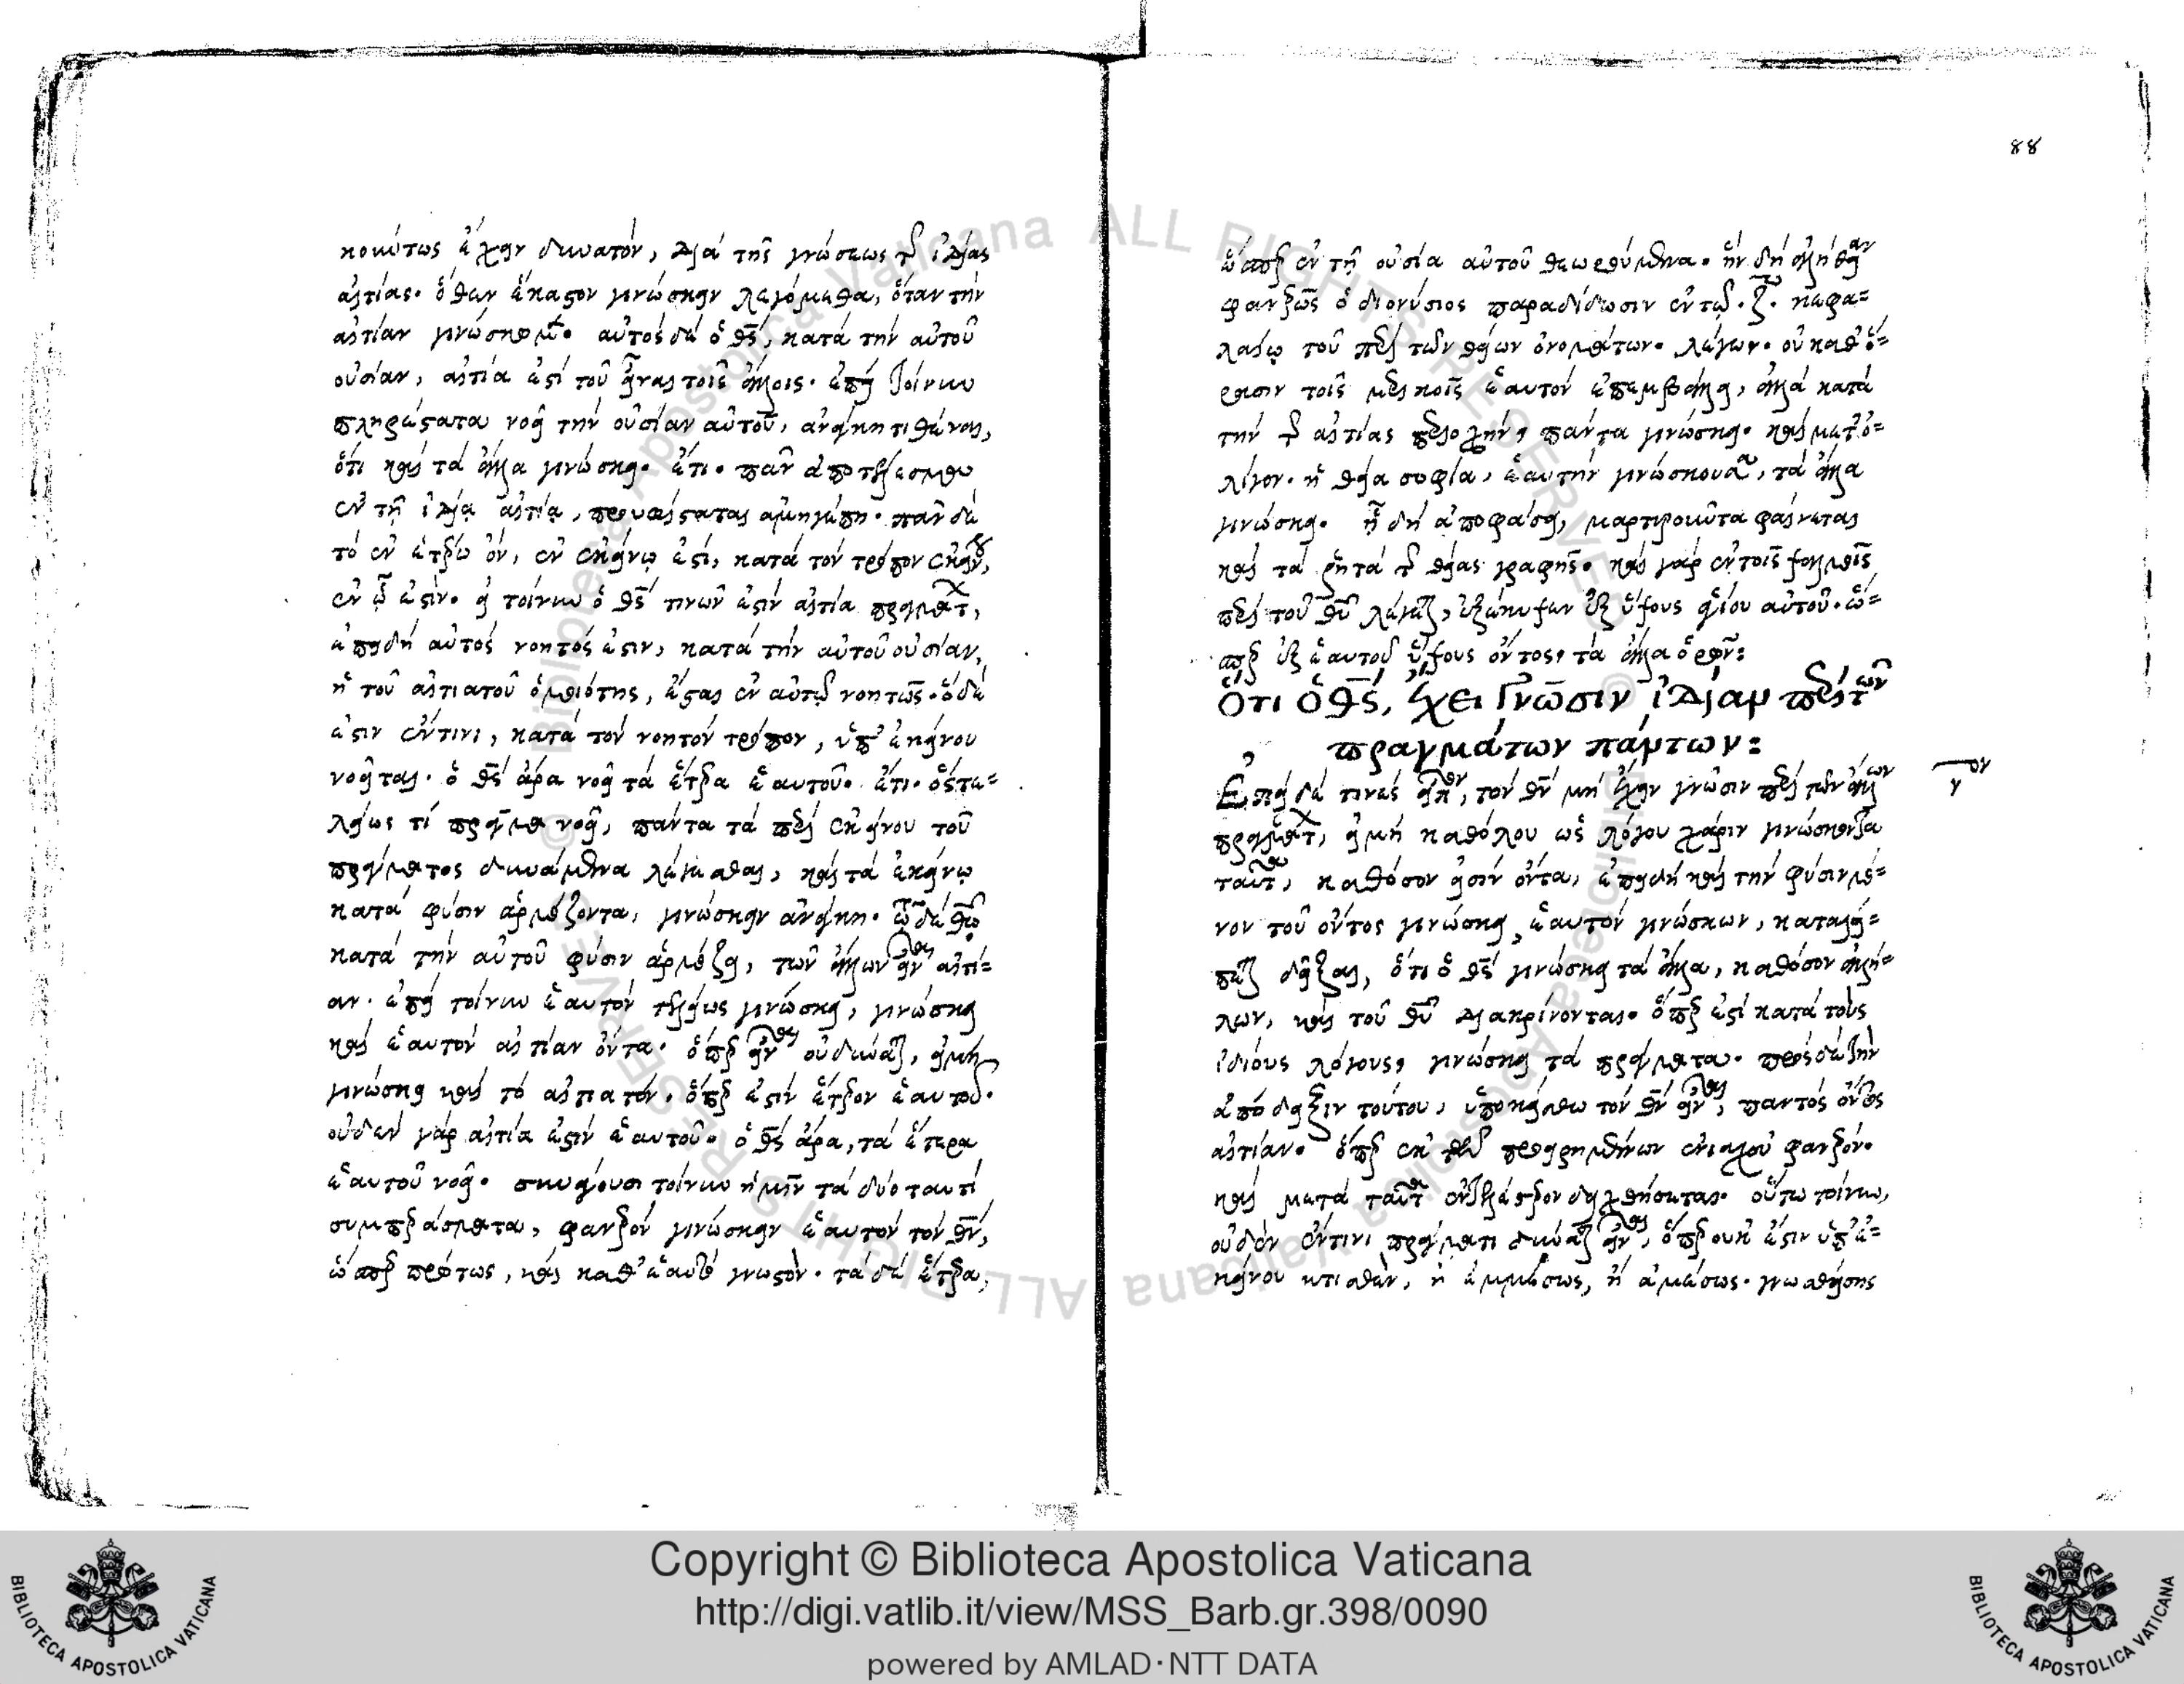 κούντως ἔχειν δυνατόν, διὰ τῆς γνώσεως τῆς ἰδίας
αἰτίας. ὅθεν ἕκαστον γινώσκειν λεγόμεθα, ὅταν τὴν
αἰτίαν γινώσκωμεν. αὐτὸς δὲ ὁ θς, κατὰ τὴν αὐτοῦ
οὐσίαν, αἰτία ἐστὶ τοῦ εἶναι τοῖς ἄλλοις. ἐπεὶ τοίνυν
πληρέστατα νοεῖ τὴν οὐσίαν αὐτοῦ, ἀνάγκη τιθέναι,
ὅτι καὶ τὰ ἄλλα γινώσκει. ἔτι. παντὸς ἀποτελέσματος
ἐν τῇ ἰδίᾳ αἰτίᾳ, προυφίσταται ἀμηγέπη. πᾶν δὲ
τὸ ἐν ἑτέρῳ ὄν, ἐν ἐκείνῳ ἐστὶ, κατὰ τὸν τρόπον ἐκείνου,
ἐν ᾧ ἐστίν. εἰ τοίνυν ὁ θς τινῶν ἐστὶν αἰτία πραγμάτων,
ἐπειδὴ αὐτὸς νοητός ἐστιν, κατὰ τὴν αὐτοῦ οὐσίαν,
ἡ τοῦ αἰτιατοῦ ὁμοιότης, ἔσται ἐν αὐτῷ νοητῶς. ὃ δέ
ἐστιν ἔν τινι, κατὰ τὸν νοητὸν τρόπον, ὑπ' ἐκείνου
νοεῖται. ὁ θς ἄρα νοεῖ τὰ ἕτερα ἑαυτοῦ. ἔτι. ὅστις τε-
λείως τί πρᾶγμα νοεῖ, πάντα τὰ περὶ ἐκείνου τοῦ
πράγματος δυνάμενα λέγεσθαι, καὶ τὰ ἐκείνῳ
κατὰ φύσιν ἁρμόζοντα, γινώσκειν ἀνάγκη. τῷ δὲ θῷ
κατὰ τὴν αὐτοῦ φύσιν ἁρμόζει, τῶν ἄλλων εἶναι αἰτί-
αν. ἐπεὶ τοίνυν ἑαυτὸν τελείως γινώσκει, γινώσκει
καὶ ἑαυτὸν αἰτίαν ὄντα. ὅπερ εἶναι οὐ δύναται, εἰ μὴ
γινώσκει καὶ τὸ αἰτιατόν. ὅπερ ἐστὶν ἕτερον ἑαυτοῦ.
οὐδὲν γάρ αἰτία ἐστὶν ἑαυτοῦ. ὁ θς ἄρα, τὰ ἕτερα
ἑαυτοῦ νοεῖ. συνάγουσι τοίνυν ἡμῖν τὰ δύο ταυτὶ
συμπεράσματα, φανερὸν γινώσκειν ἑαυτὸν τὸν θν,
ὥσπερ πρώτως, καὶ καθ' ἑαυτὸ γνωστόν. τὰ δὲ ἕτερα,
88
ὥσπερ ἐν τῇ οὐσίᾳ αὐτοῦ θεωρούμενα. ἣν δὴ ἀλήθειαν
φανερῶς ὁ διονύσιος παραδίδωσιν ἐν τῷ. ζ. κεφα-
λαίῳ τοῦ περὶ τῶν θείων ὀνομάτων. λέγων. οὐ καθ' ὅ-
ρασιν τοῖς μερικοῖς ἑαυτὸν ἐπεμβάλλει, ἀλλὰ κατὰ
τὴν τῆς αἰτίας περιοχὴν, πάντα γινώσκει. καὶ μετ' ὀ-
λίγον. ἡ θεία σοφία, ἑαυτὴν γινώσκουσα, τὰ ἄλλα
γινώσκει. ᾗ δὴ ἀποφάσει, μαρτυροῦντα φαίνεται
καὶ τὰ ῥητὰ τῆς θείας γραφῆς. καὶ γὰρ ἐν τοῖς ψαλμοῖς
περὶ τοῦ θυ λέγεται, ἐξέκυψεν ἐξ ὕψους ἁγίου αὐτοῦ. ὥ-
σπερ ἐξ ἑαυτοῦ ὕψους ὄντος, τὰ ἄλλα ὁρῶν:
Ὅτι ὁ θς, ἔχει γνῶσιν ἰδίαν περὶ τῶν
πραγμάτων πάντων:
Ἐπεὶ δέ τινες εἶπον, τὸν θν μὴ ἔχειν γνῶσιν περὶ τῶν ἄλλων
πραγμάτων, εἰ μὴ καθόλου ὡς λόγου χάριν γινώσκοντα
ταῦτα, καθόσον εἰσὶν ὄντα, ἐπειδὴ καὶ τὴν φύσιν μό-
νον τοῦ ὄντος γινώσκει, ἑαυτὸν γινώσκων, καταλεί-
πεται δεῖξαι, ὅτι ὁ θς γινώσκει τὰ ἄλλα, καθόσον ἀλλή-
λων, καὶ τοῦ θυ διακρίνονται. ὅπερ ἐστὶ κατὰ τοὺς
ἰδίους λόγους, γινώσκει τὰ πράγματα. πρὸς δὲ τὴν
ἀπόδειξιν τούτου, ὑποκείσθω τὸν θν εἶναι, παντὸς ὄντος
αἰτίαν. ὅπερ ἐκ τῶν προειρημένων ἐνιαχοῦ φανερόν.
καὶ μετὰ ταῦτα ἐντελέστερον δειχθήσεται. οὕτω τοίνυν,
οὐδὲν ἔν τινι πράγματι δύναται εἶναι, ὅπερ οὐκ ἔστιν ὑπ' ἐ-
κείνου κτισθὲν, ἢ ἐμμέσως, ἢ ἀμέσως. γνωσθείσης
ν ον
Copyright © Biblioteca Apostolica Vaticana
http://digi.vatlib.it/view/MSS_Barb.gr.398/0090
powered by AMLAD·NTT DATA